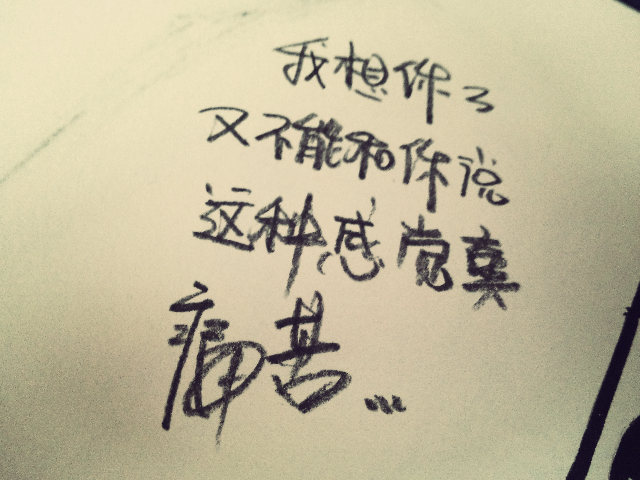 我想你了
又不能和你说
这种感觉真
痛苦...